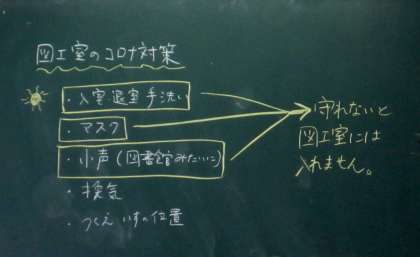 図工室のコロナ対策
・入室 退室 手洗い
・マスク
・小声(図書館みたいに)
・換気
・つくえ いすの位置
守れないと
図工室には
入れません。